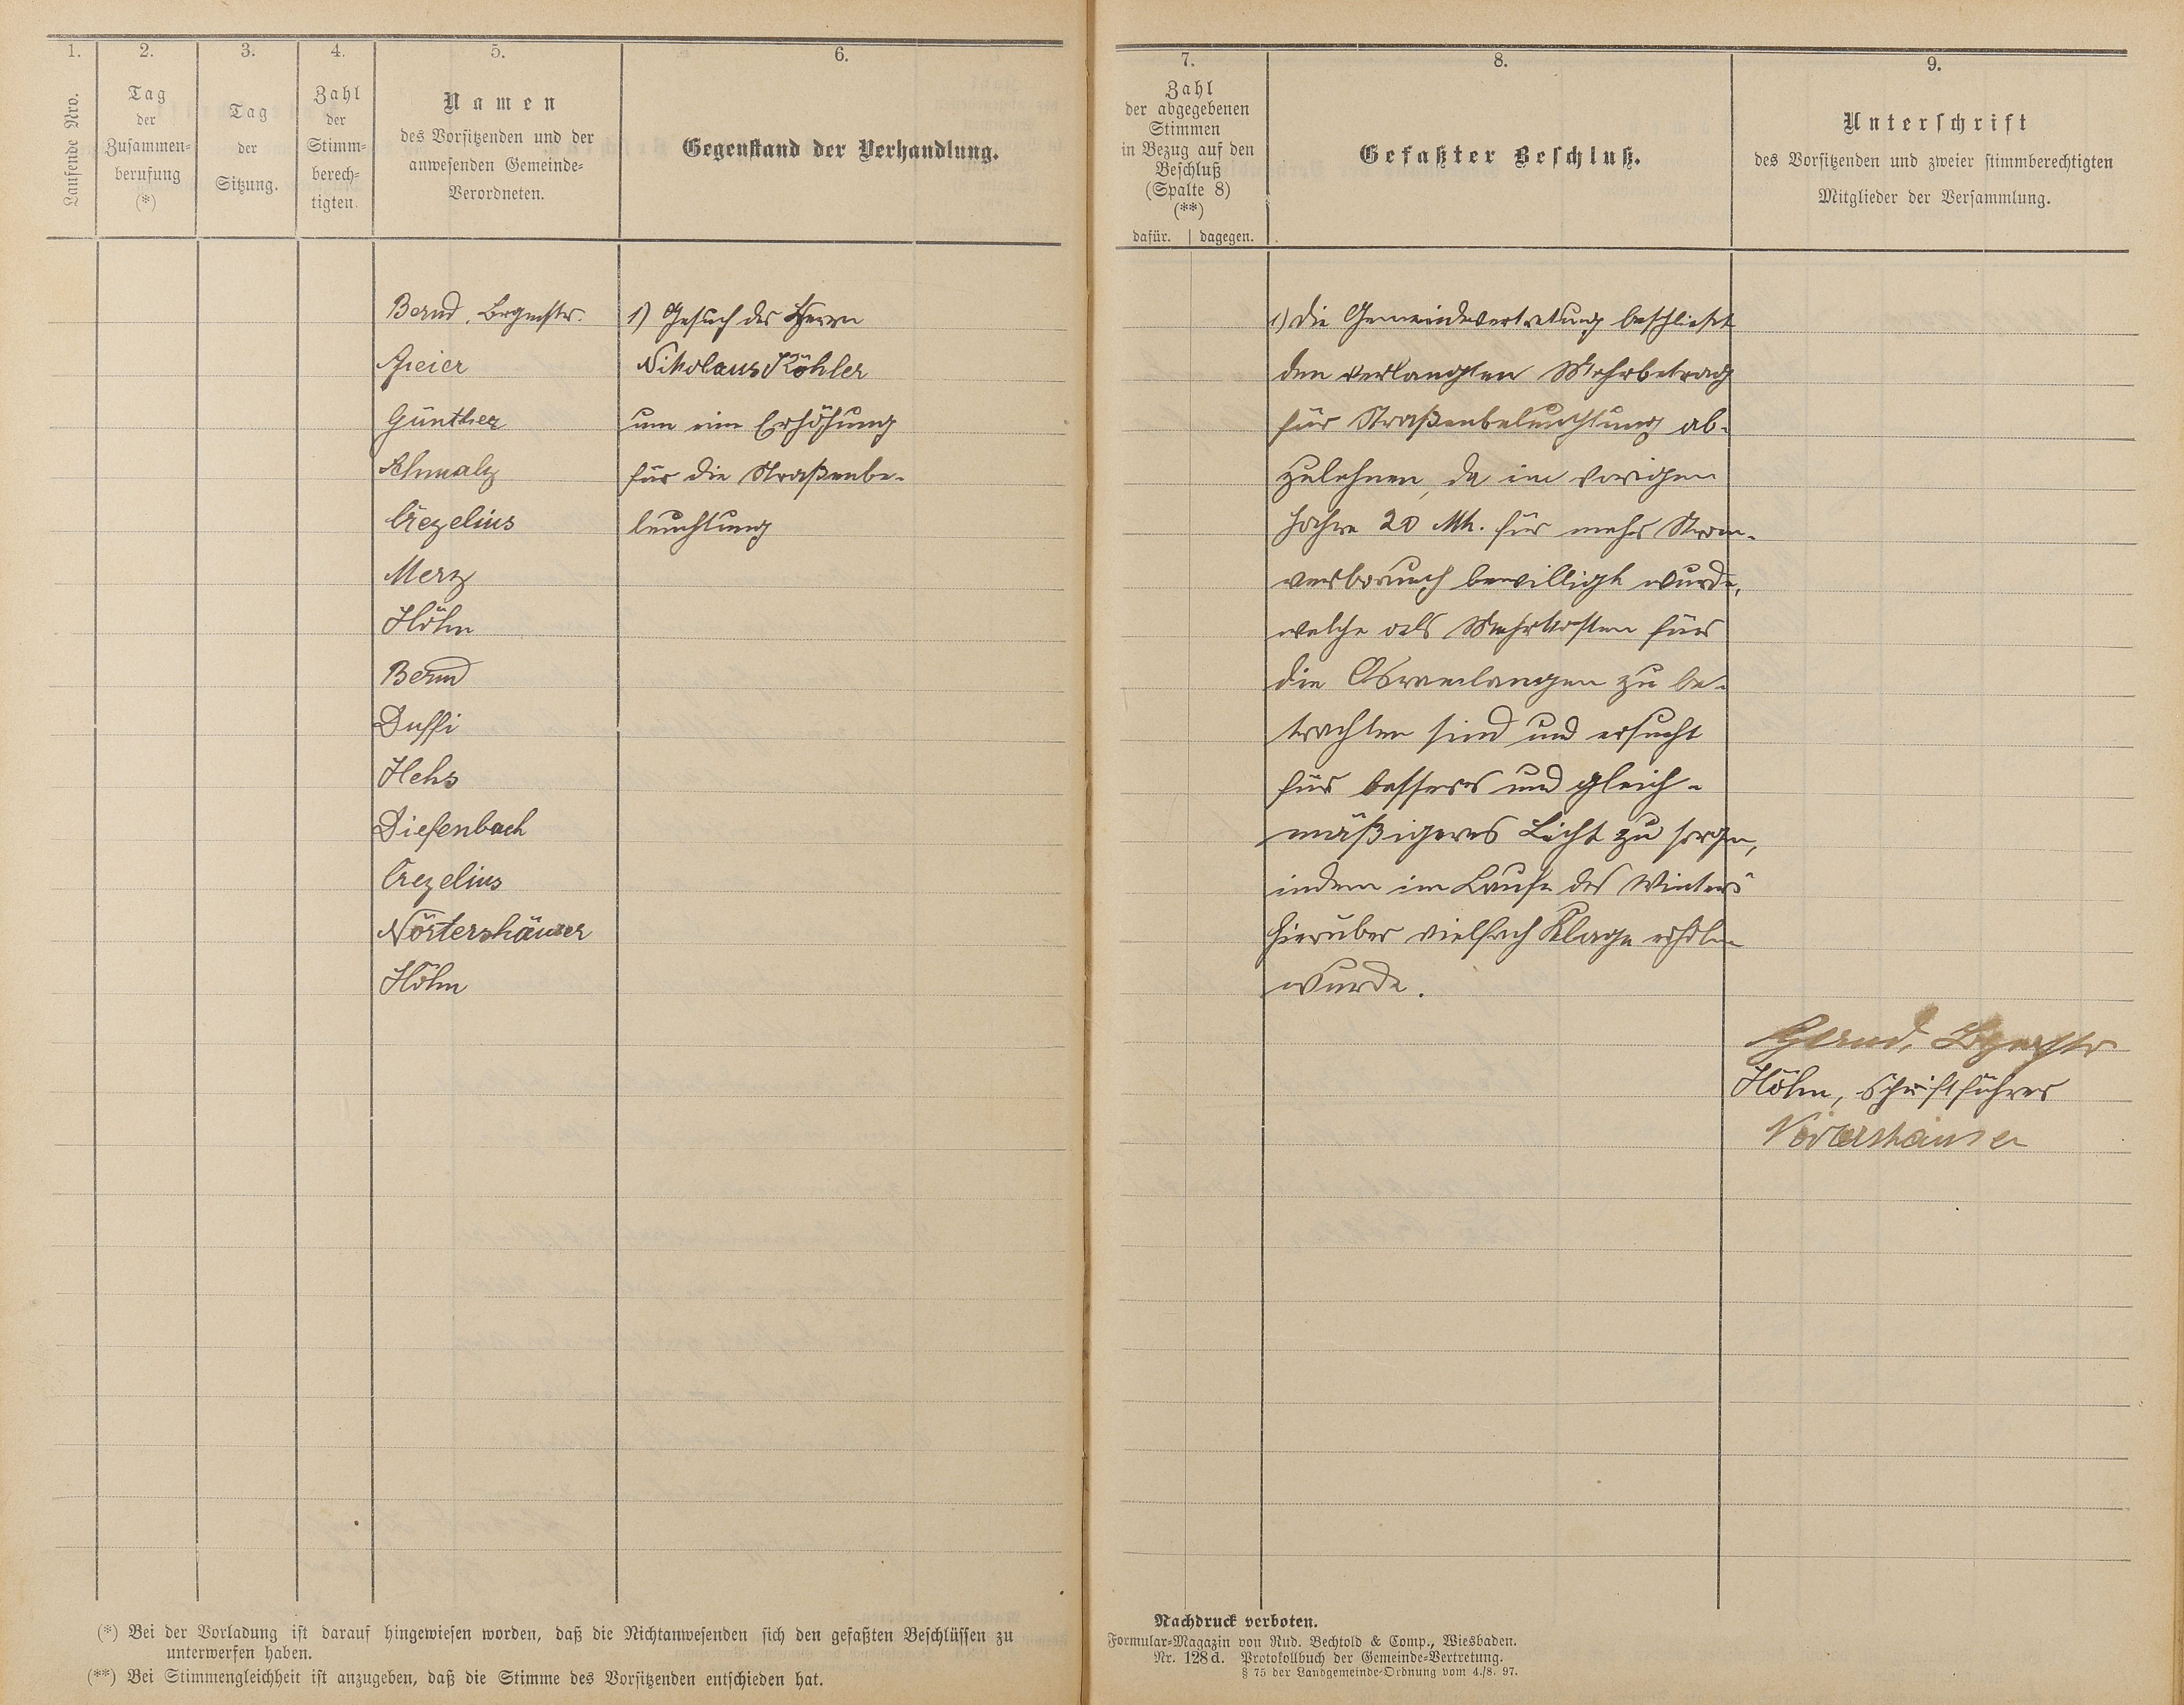 1.
Laufende Nro.
2.
Tag
der
Zusammen-
berufung
(*)
3.
Tag
der
Sitzung.
4.
Zahl
der
Stimm-
berech-
tigten.
5.
Namen
des Vorsitzenden und der
anwesenden Gemeinde-
Verordneten.
6.
Gegenstand der Verhandlung.
Bernd, Brgmstr.
Günther
Schmalz
Crezelius
Merz
Höhn
Bernd
Hehs
Diefenbach
Crezelius
Nörtershäuser
Höhn
1) Gesuch des Herrn
Nikolaus Köhler
um eine Erhöhung
für die Straßenbe-
leuchtung
(*) Bei der Vorladung ist darauf hingewiesen worden, daß die Nichtanwesenden sich den gefaßten Beschlüssen zu
unterwerfen haben.
(**) Bei Stimmengleichheit ist anzugeben, daß die Stimme des Vorsitzenden entschieden hat.
7.
Zahl
der abgegebenen
Stimmen
in Bezug auf den
Beschluß
(Spalte 8)
(**)
dafür. | dagegen.
8.
Gefaßter Beschluß.
9.
Unterschrift
des Vorsitzenden und zweier stimmberechtigten
Mitglieder der Versammlung.
1) Die Gemeindevertretung beschließt
den verlangten Mehrbetrag
für Straßenbeleuchtung ab-
zulehnen, da im vorigen
Jahre 20 Mk. für mehr Strom-
verbrauch bewilligt wurde,
welche als Mehrkosten für
die zu be-
trachten sind und ersucht
für besseres und gleich-
mäßigeres Licht zu sorgen,
indem im Laufe des Winters
hierüber vielfach Klage erhoben
wurde.
Bernd, Brgmstr
Höhn, Schriftführer
Nörtershäuser
Nachdruck verboten.
Formular-Magazin von Rud. Bechtold & Comp., Wiesbaden.
Nr. 128d. Protokollbuch der Gemeinde-Vertretung.
§ 75 der Landgemeinde-Ordnung vom 4./8. 97.